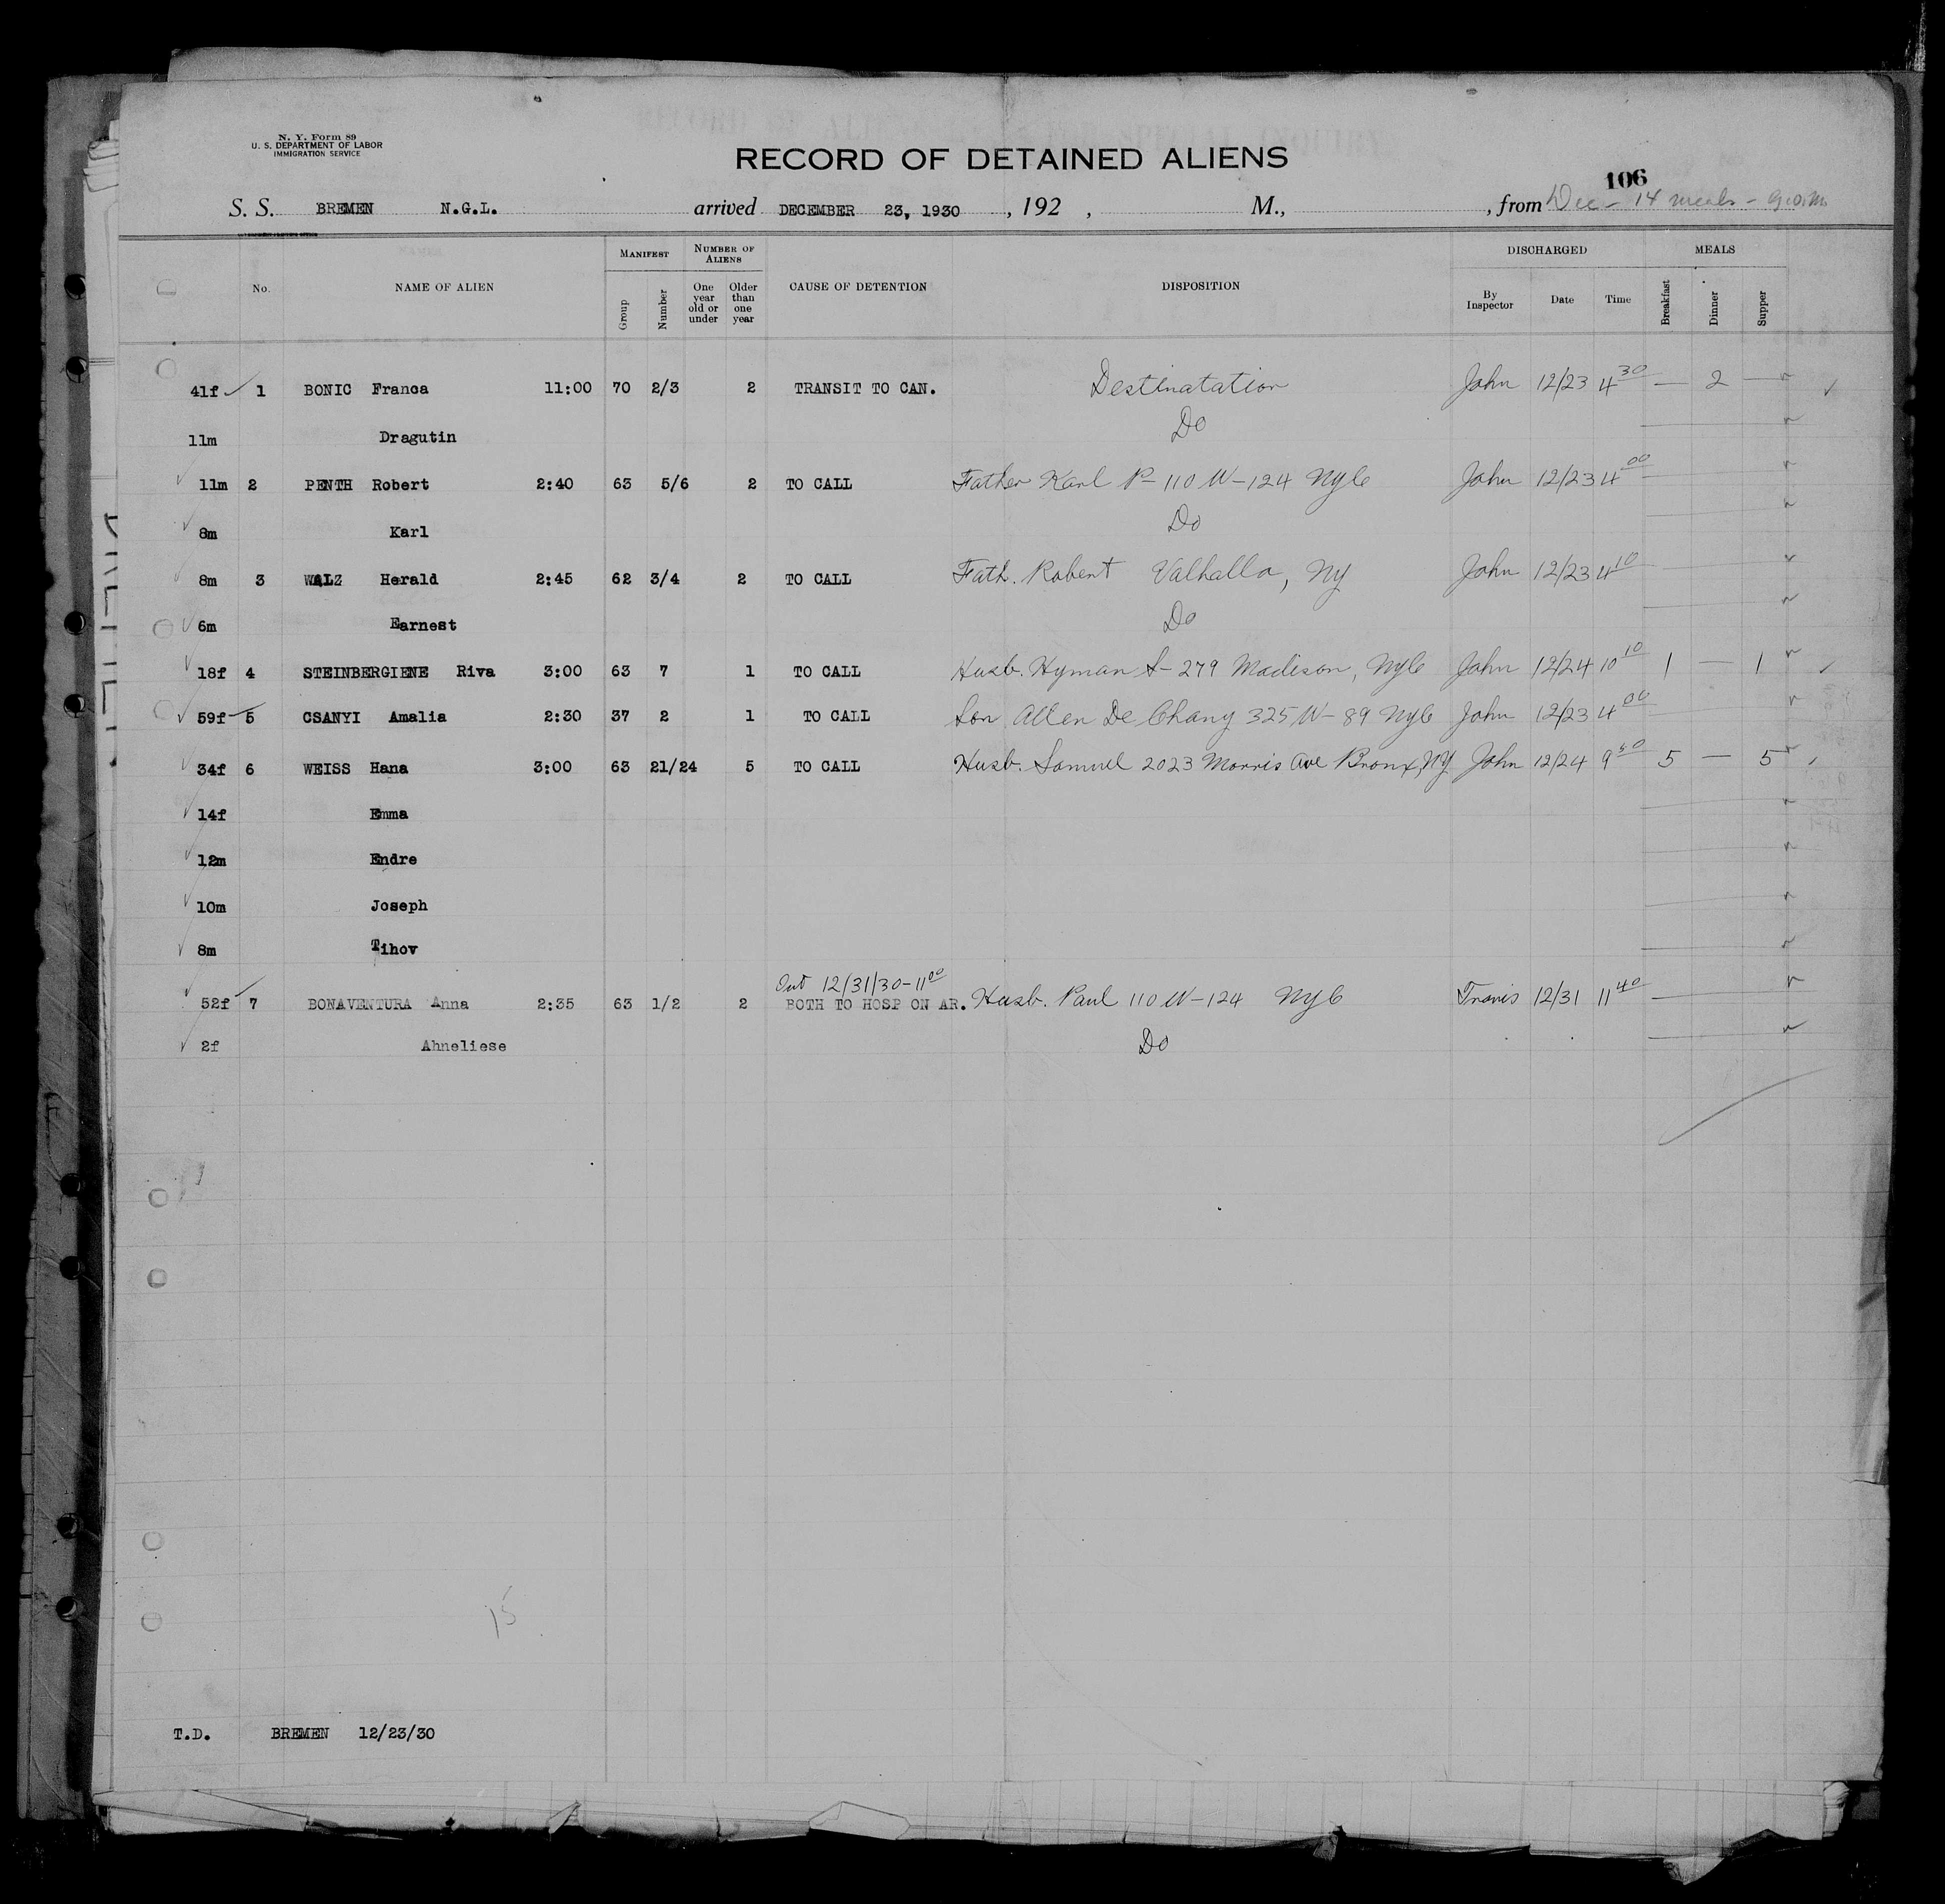 N. Y. Form 89
U. S. DEPARTMENT OF LABOR
IMMIGRATION SERVICE
RECORD OF DETAINED ALIENS
106
S. S. BREMEN N.G.L. arrived DECEMBER 23, 1930 , 192 , M., , from Dec - 14 meals -
No. NAME OF ALIEN MANIFEST Group Number NUMBER OF ALIENS One year old or under Older than one year CAUSE OF DETENTION DISPOSITION DISCHARGED By Inspector Date Time MEALS Breakfast Dinner Supper
41f 1 BONIC Franca 11:00 70 2/3 2 TRANSIT TO CAN. Destinatation John 12/23 4 30 — 2 —
11m Dragutin Do
11m 2 PENTH Robert 2:40 63 5/6 2 TO CALL Father Karl P- 110 W-124 NyC John 12/23 4 00
8m Karl Do
8m 3 WALZ Herald 2:45 62 3/4 2 TO CALL Fath. Robert Valhalla, Ny John 12/23 4 10
6m Earnest Do
18f 4 STEINBERGIENE Riva 3:00 63 7 1 TO CALL Husb. Hyman S- 279 Madison, NyC John 12/24 10 10 1 — 1
59f 5 CSANYI Amalia 2:30 37 2 1 TO CALL Son Allen De Chany 325 W- 89 NyC John 12/23 4 00
34f 6 WEISS Hana 3:00 63 21/24 5 TO CALL Husb. Samuel 2023 Morris Ave Bronx, NY John 12/24 9 50 5 — 5
14f Emma
12m Endre
10m Joseph
8m Tihov
Out 12/31/30-11 00
52f 7 BONAVENTURA Anna 2:35 63 1/2 2 BOTH TO HOSP ON AR. Husb. Paul 110 W-124 NyC Travis 12/31 11 40
2f Ahneliese Do
15
T.D. BREMEN 12/23/30